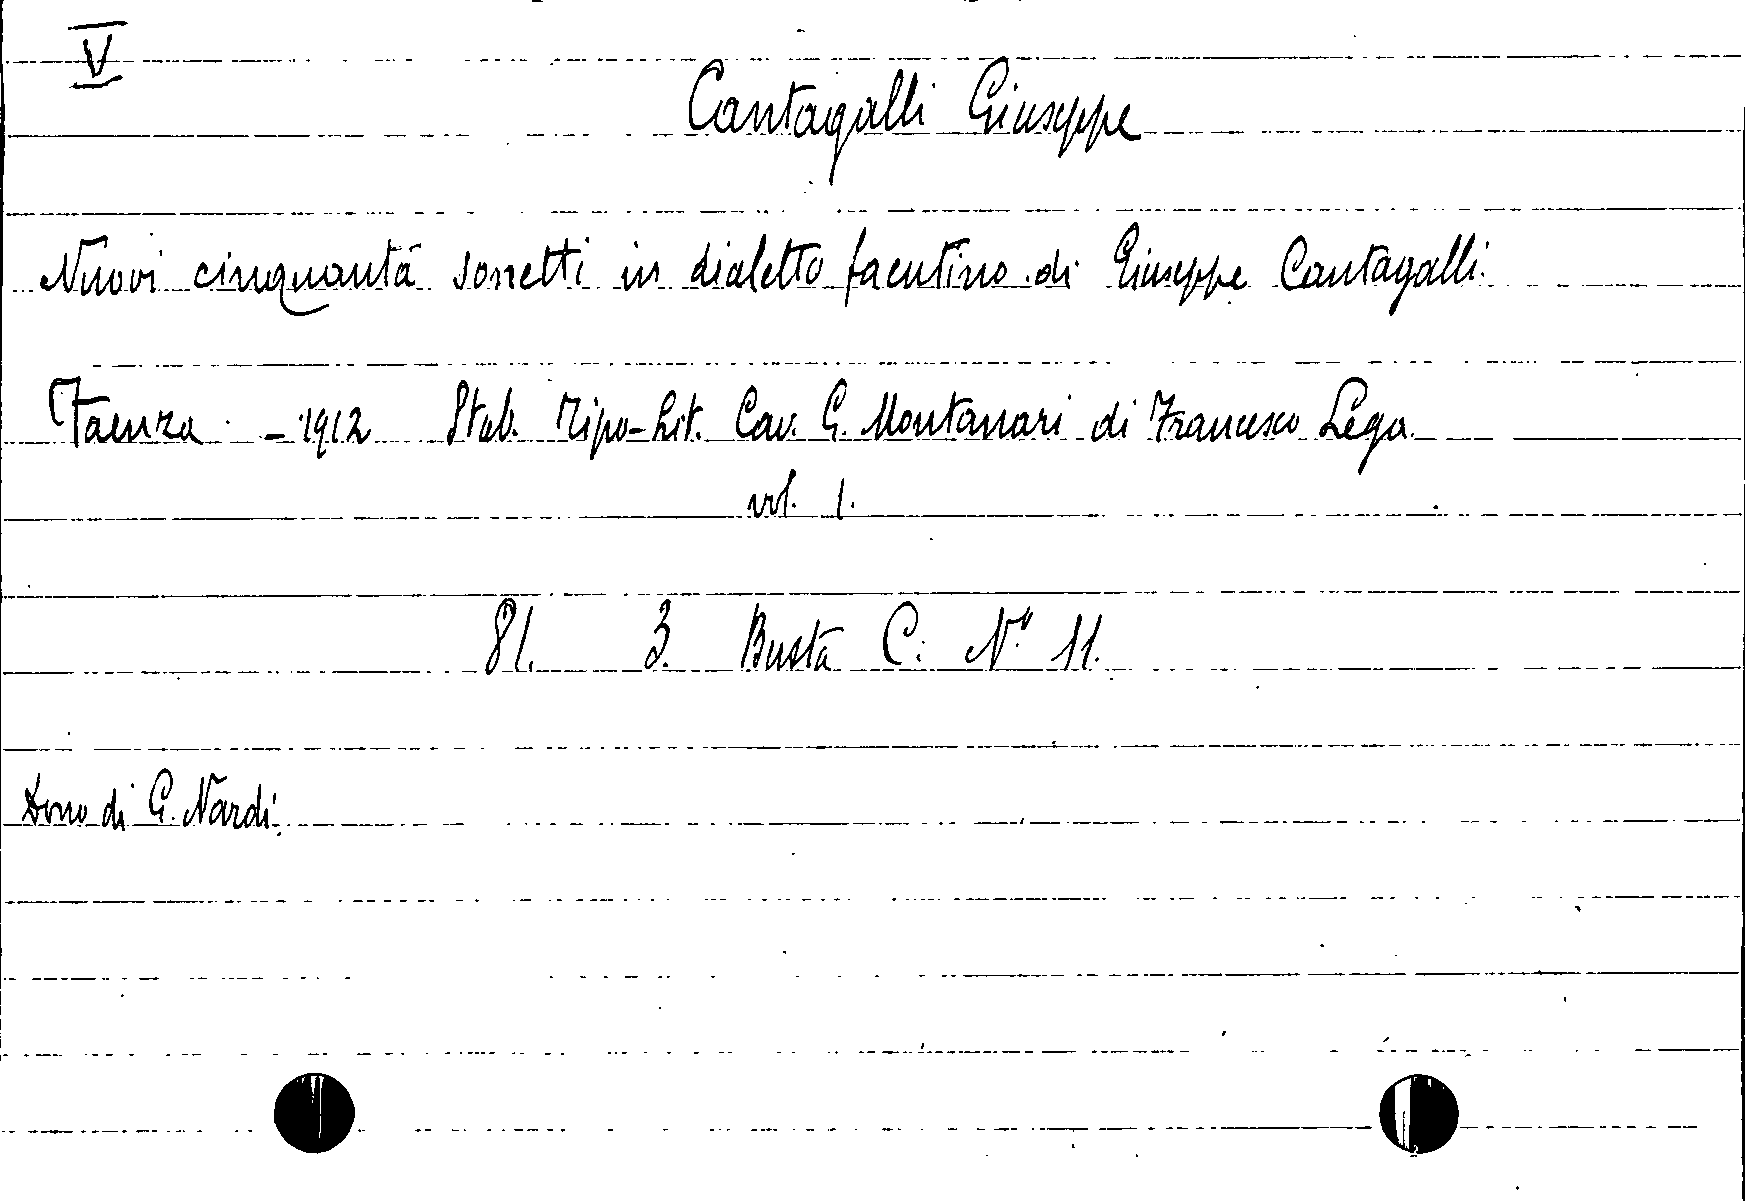 V
Cantagalli Giuseppe
Nuovi cinquanta sonetti in dialetto faentino di Giuseppe Cantagalli.
Faenza - 1912 Stab. Tipo-Lit. Cav. G. Montanari di Francesco Lega.
vol. 1.
81. 3. Busta C. N.º 11.
Dono di G. Nardi.